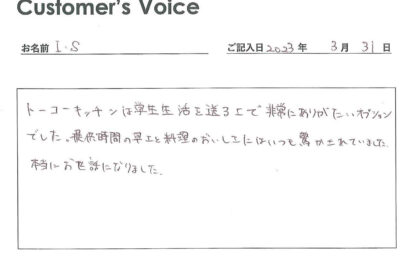 Customer's Voice
お名前 I・S ご記入日 2023 年 3 月 31 日
トーコーキッチンは学生生活を送る上で非常にありがたいオプション
でした。提供時間の早さと料理のおいしさにはいつも驚かされていました。
本当にお世話になりました。